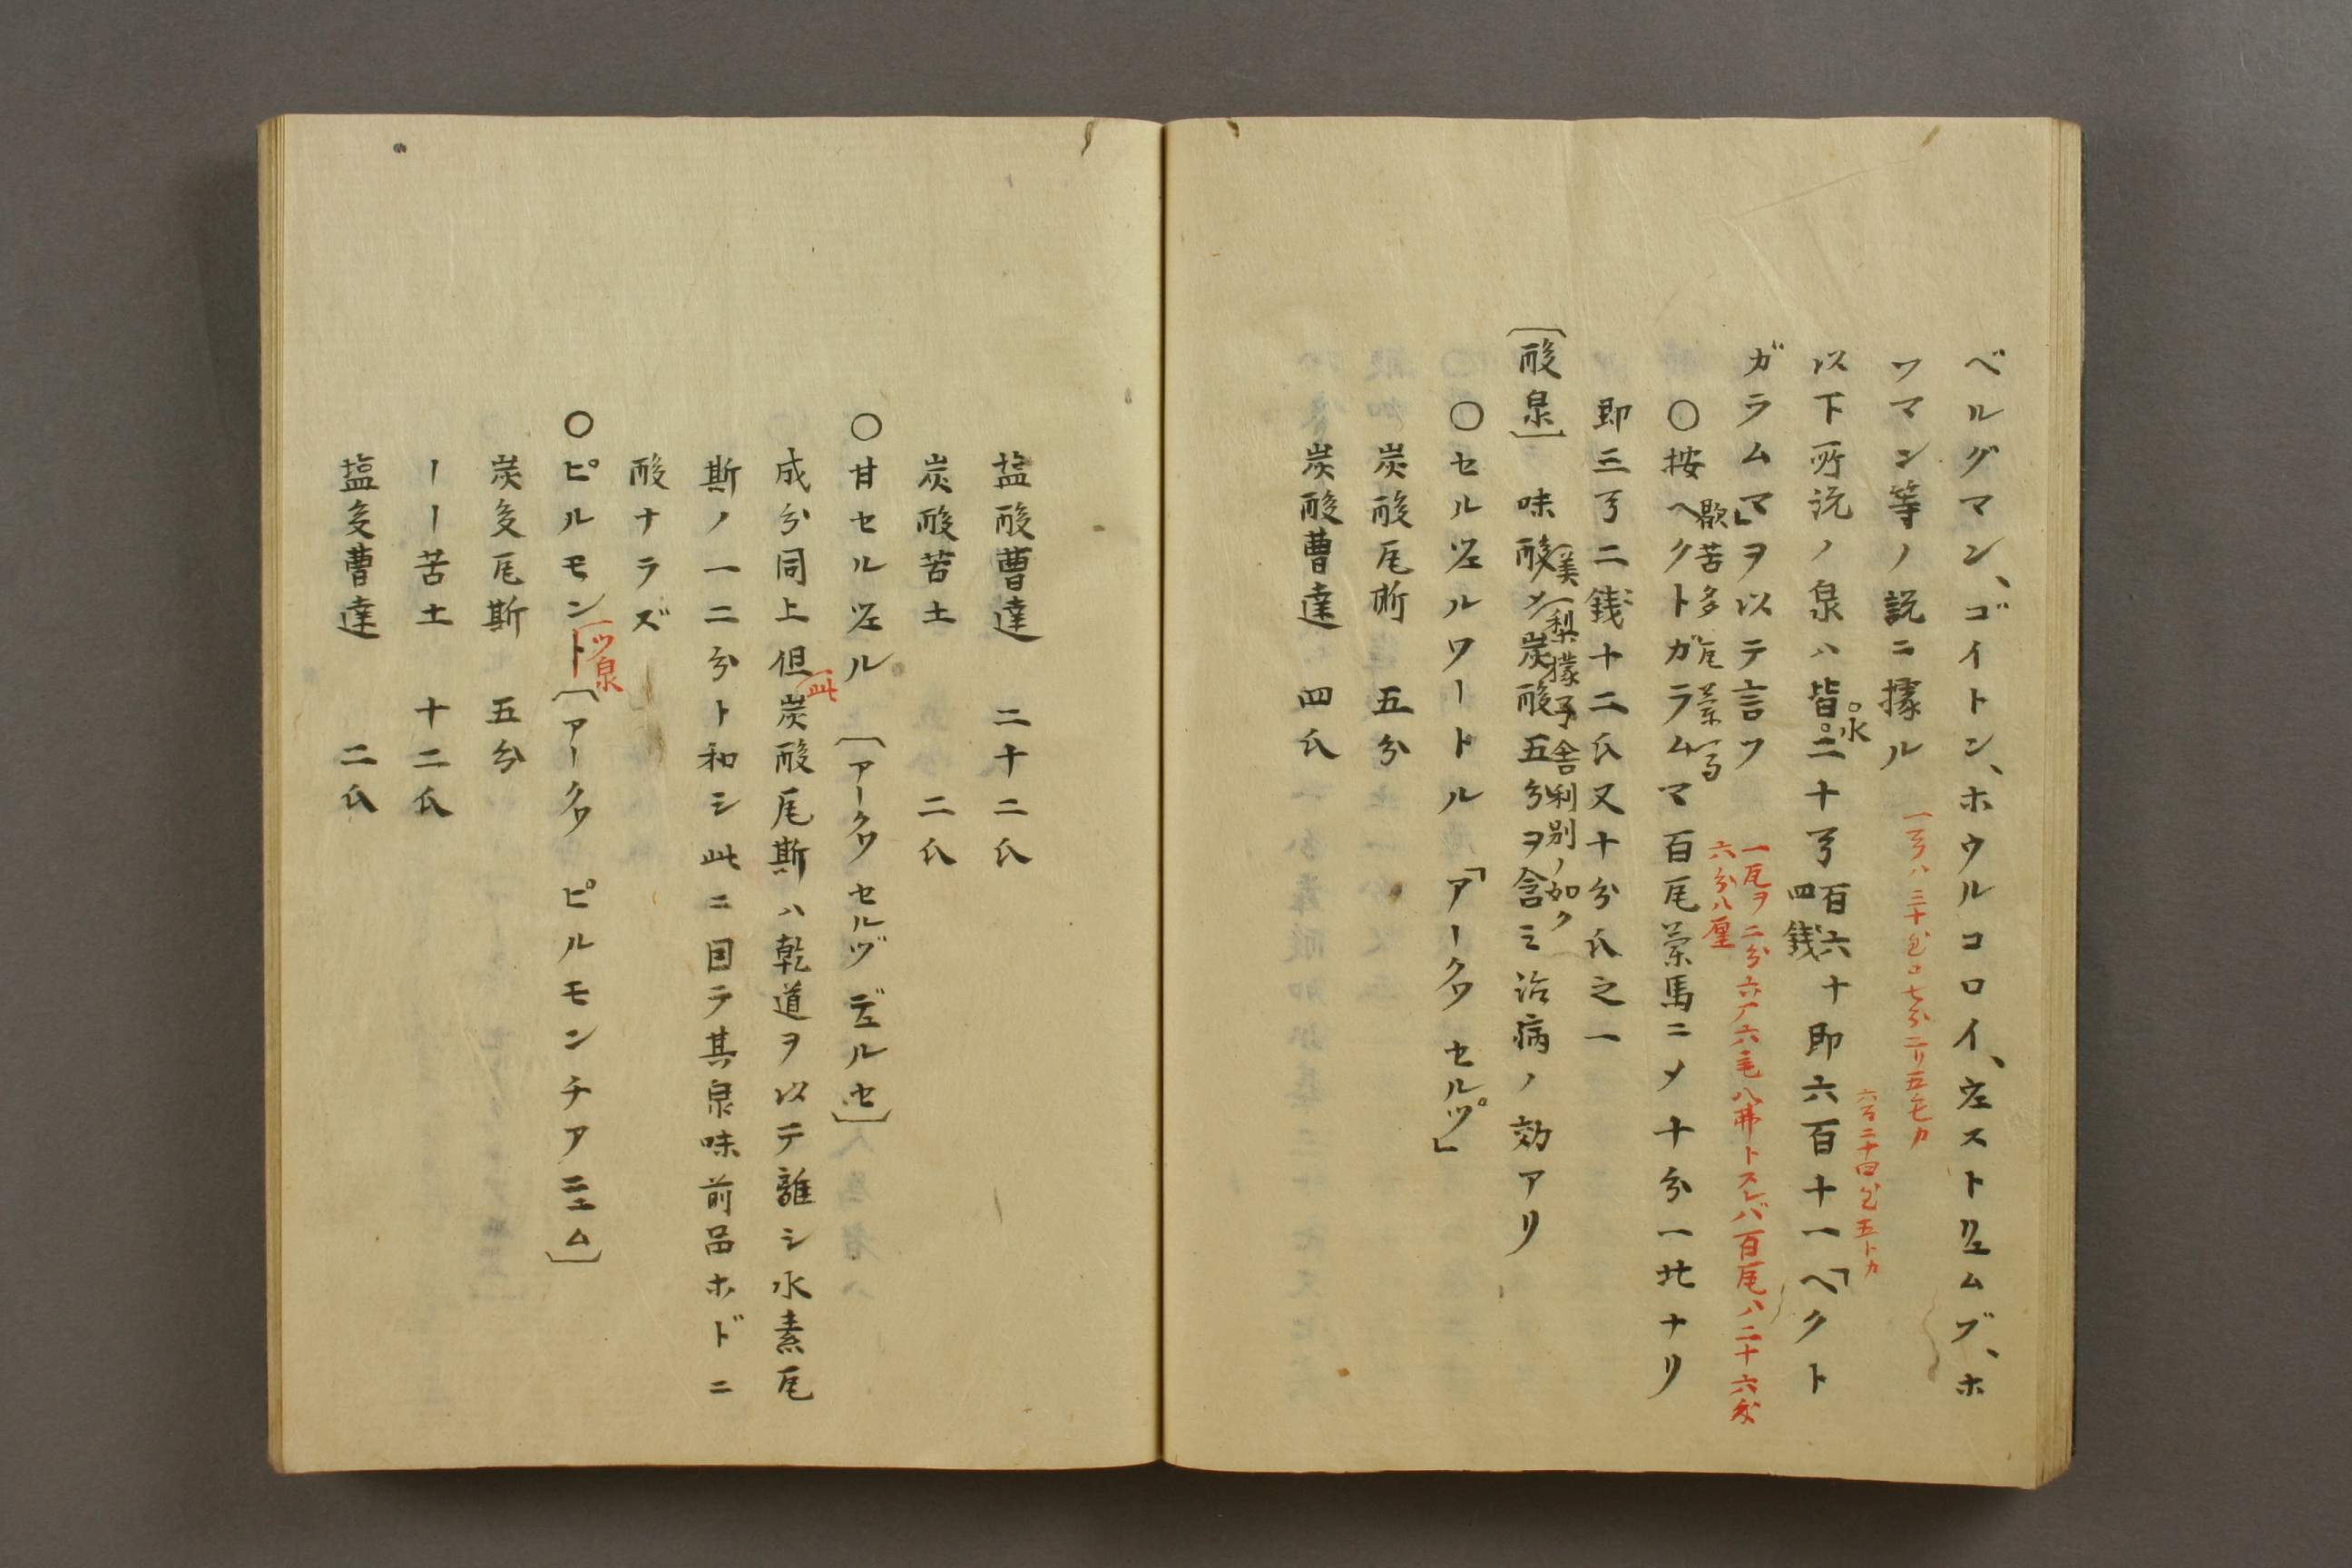 ベルグマン、ゴイトン、ホウルコロイ、左ストリエムブ、ホ
ツマン等ノ説ニ據ル
一㝵ハ三十
以下所説ノ泉ハ皆。二十㝵百六十即六百十一「ヘクト
。水
四銭
六百二十四 五トカ
ガラムマ」ヲ以テ言フ
一瓦ヲ二分六厂六毛八弗トスレバ百瓦ハ二十六
六分八厘
歇苦多瓦蘭馬
○按ヘクトガラムマ百瓦蘭馬ニメ十分一比ナリ
即三㝵二銭十二氏又十分氏之一
〔酸泉〕 味酸メ炭酸五分ヲ含ミ治病ノ効アリ
美梨檬子舎利別ノ如ク
○セルヅエルワートル 「アークワ セルツ」
炭酸瓦斯 五分
炭酸曹達 四氏
塩酸曹達 二十二氏
炭酸苦土 二氏
○甘セルヅエル 〔アークワ セルヅ デエルセ〕
成分同上但炭酸瓦斯ハ乾道ヲ以テ離シ水素瓦
此
斯ノ一二分ト和シ此ニ因テ其泉味前品ホドニ
酸ナラズ
○ピルモント〔アークワ ピルモンチアニエム〕
ツ泉
炭多瓦斯 五分
ーー苦土 十二氏
塩多曹達 二氏